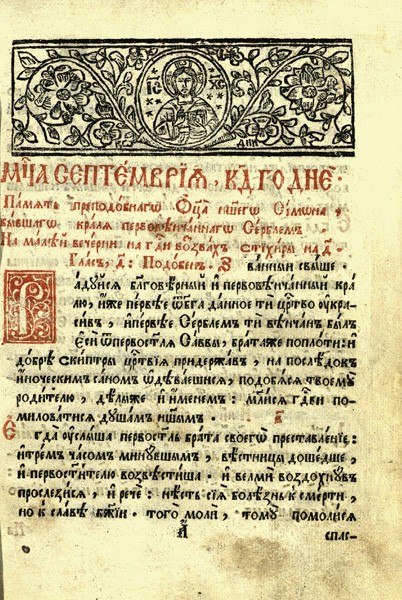 ІС ХС
МЦⷭ҇А СЕПТЕМВРІА, КД҃ ГО ДНЕ
Память преподобнагѡ Ѻц҃а нашегѡ Сімѡна,
бывшагѡ крала первовѣнчаннагѡ Серблем
На малѣй вечерни на гдⷭ҇и возвах стіхиры на д҃.
Гласъ, д҃: Подобен. З ванный свыше
Радуйсѧ благовѣрный и первовѣнчаный кра
лю, иже первѣе ѿ бг҃а данное ти црⷭ҇тво оукра
сивъ, и первѣе Серблем ти вѣнчан былъ
еси ѿ первостлѧ Саввы, брата же по плоти: и
добрѣ скиптры црⷭ҇твїѧ придержав, на послѣдок
иноческим саном ѡдѣваешисѧ, подобѧсѧ твоему
родителю, дѣлы же и именем: мл҃исѧ гд҃ви по
миловатисѧ душамъ н҃шым. в҃
Егда оуслыша первостль брата своегѡ преставленіе:
и трем часом минувшым, вѣстницы дошедше,
и первост҃ителю возвѣстиша. и велми воздохнув
прослезисѧ, и рече: нѣсть сїѧ болѣзнь к смерти,
но к славѣ бж҃їи. того моли, тому помолисѧ
спас-